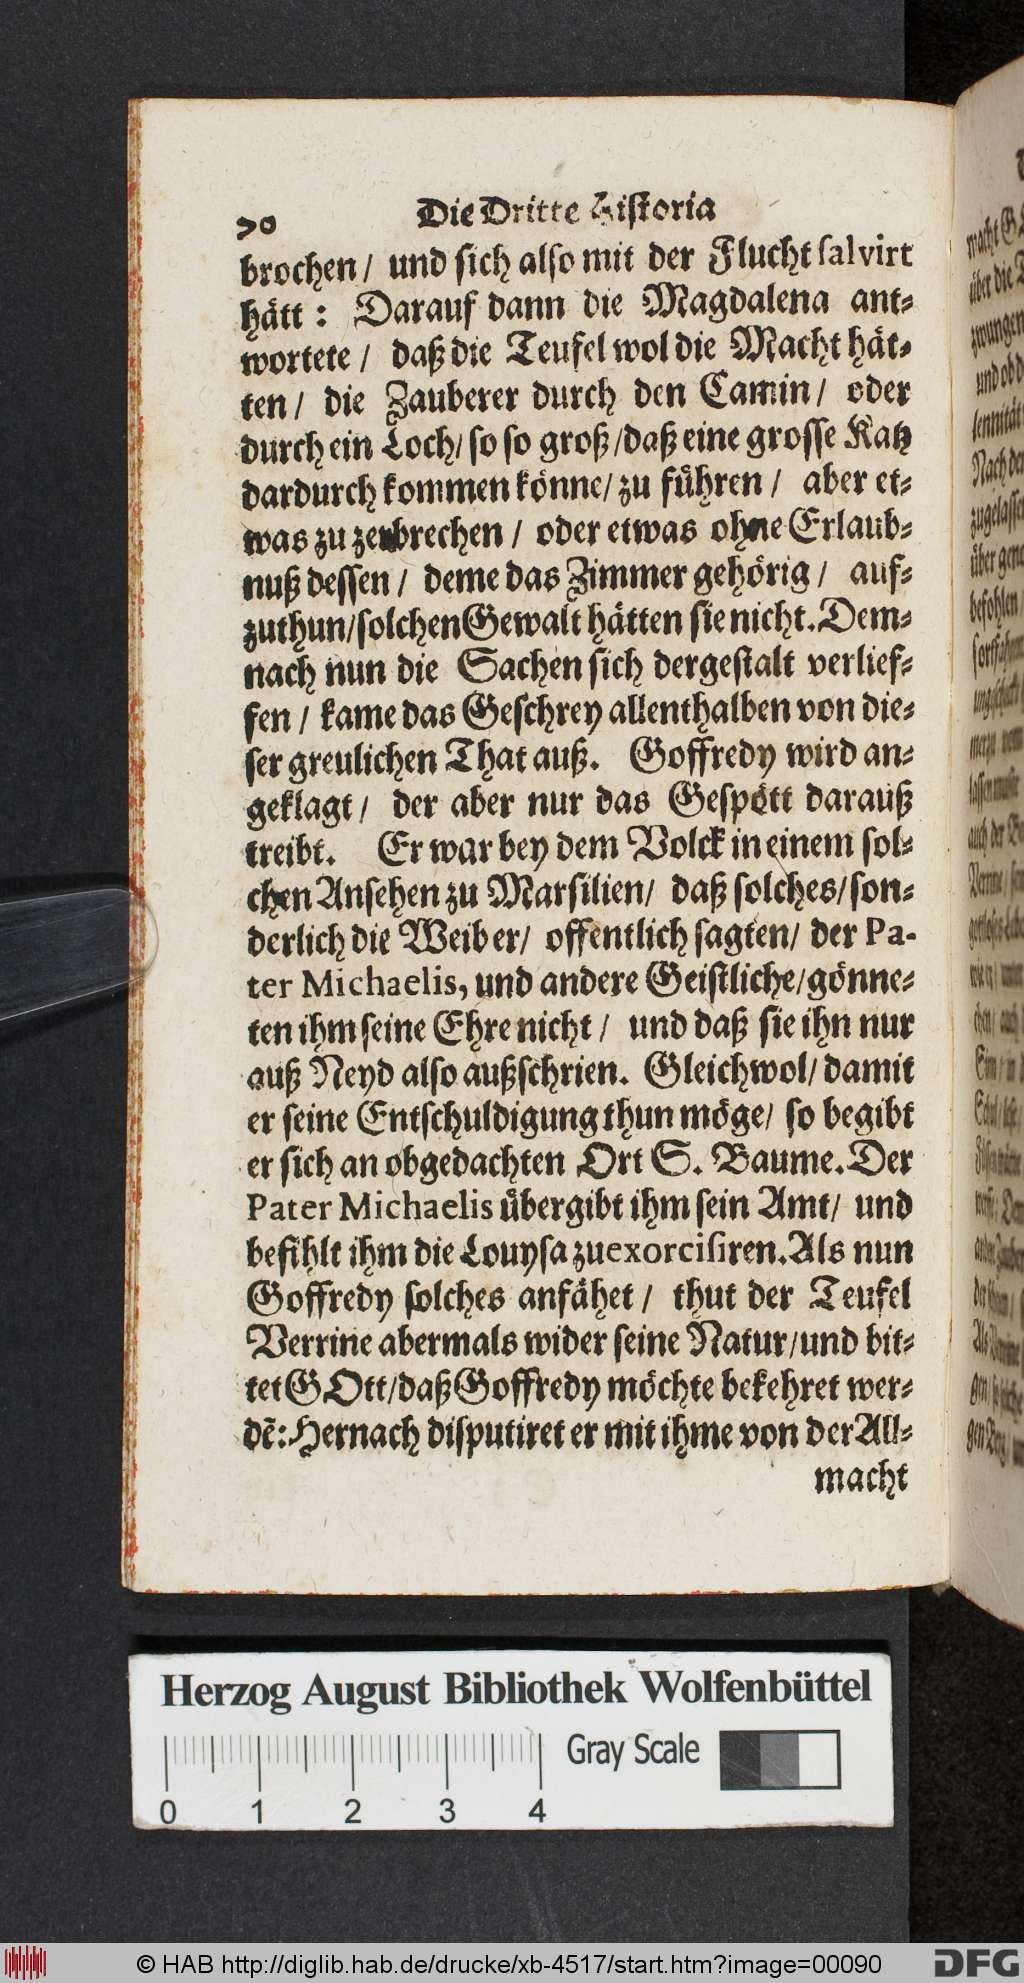 70 Die Dritte Historia
brochen / und sich also mit der Flucht salvirt
hätt : Darauf dann die Magdalena ant-
wortete / daß die Teufel wol die Macht hät-
ten / die Zauberer durch den Camin / oder
durch ein Loch / so so groß / daß eine grosse Katz
dardurch kommen könne / zu führen / aber et-
was zu zerbrechen / oder etwas ohne Erlaub-
nuß dessen / deme das Zimmer gehörig / auf-
zuthun / solchen Gewalt hätten sie nicht. Dem-
nach nun die Sachen sich dergestalt verlief-
fen / kame das Geschrey allenthalben von die-
ser greulichen That auß. Goffredy wird an-
geklagt / der aber nur das Gespött darauß
treibt. Er war bey dem Volck in einem sol-
chen Ansehen zu Marsilien / daß solches / son-
derlich die Weiber / offentlich sagten / der Pa-
ter Michaelis, und andere Geistliche / gönne-
ten ihm seine Ehre nicht / und daß sie ihn nur
auß Neyd also außschrien. Gleichwol / damit
er seine Entschuldigung thun möge / so begibt
er sich an obgedachten Ort S. Baume. Der
Pater Michaelis übergibt ihm sein Amt / und
befihlt ihm die Louysa zu exorcisiren. Als nun
Goffredy solches anfähet / thut der Teufel
Verrine abermals wider seine Natur / und bit-
tet GOtt / daß Goffredy möchte bekehret wer-
dē: Hernach disputiret er mit ihme von der All-
macht
Herzog August Bibliothek Wolfenbüttel
Gray Scale
0 1 2 3 4
© HAB http://diglib.hab.de/drucke/xb-4517/start.htm?image=00090
DFG